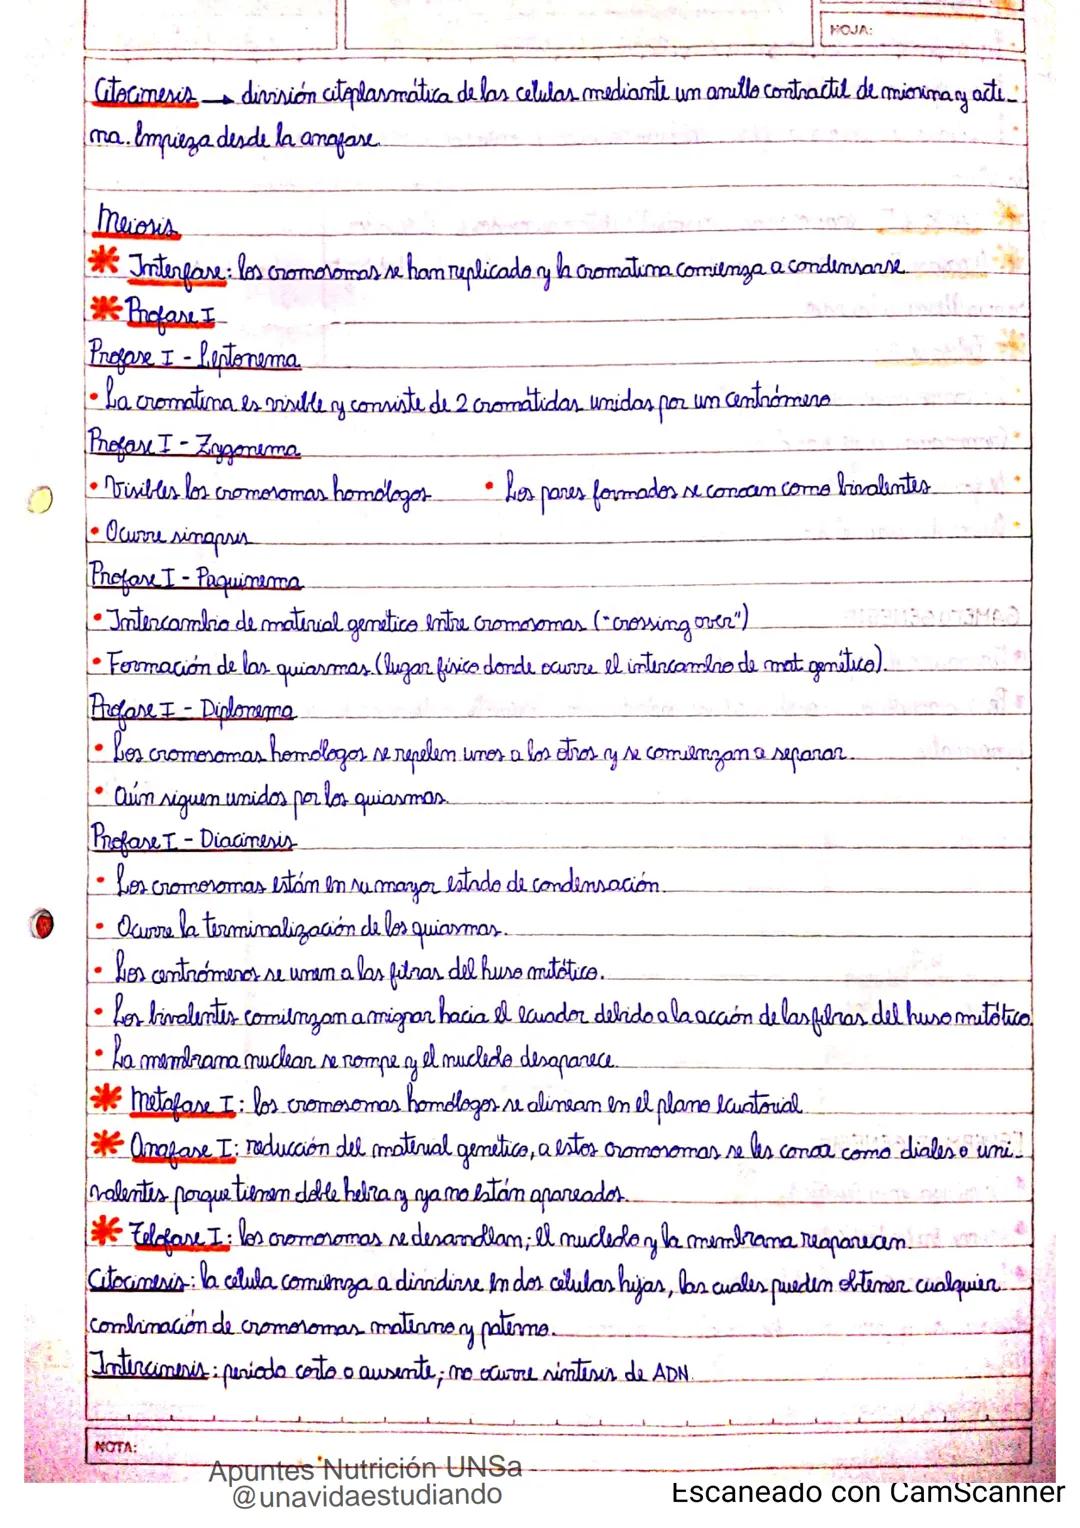 HOJA:
Citocinesis → división citoplasmática de las celulas mediante un anillo contractil de miosina y acti-
na. Empieza desde la anafase.
Meiosis
* Interfase: los cromosomas se han replicado y la cromatina comienza a condensarse.
* Profase I
Profase I - Leptonema
• La cromatina es visible y consiste de 2 cromátidas unidas por un centrómero
Profase I - Zygonema
• Visibles los cromosomas homólogos • Los pares formados se conocen como bivalentes
• Ocurre sinapsis
Profase I - Paquinema
• Intercambio de material genético entre cromosomas ("crossing over")
• Formación de las quiasmas (lugar físico donde ocurre el intercambio de mat. genético).
Profase I - Diplonema
• Los cromosomas homólogos se repelen unos a los otros y se comienzan a separar.
• Aún siguen unidos por los quiasmas.
Profase I - Diacinesis
• Los cromosomas están en su mayor estado de condensación.
• Ocurre la terminalización de los quiasmas.
• Los centrómeros se unen a las fibras del huso mitótico.
• Los bivalentes comienzan a migrar hacia el ecuador debido a la acción de las fibras del huso mitótico.
• La membrana nuclear se rompe y el nucleolo desaparece.
* Metafase I: los cromosomas homólogos se alinean en el plano ecuatorial
* Anafase I: reducción del material genético, a estos cromosomas se les conoce como diales o uni-
valentes porque tienen doble hebra y ya no están apareados.
* Telofase I: los cromosomas se desarrollan; el nucleolo y la membrana reaparecen.
Citocinesis: la célula comienza a dividirse en dos células hijas, las cuales pueden obtener cualquier
combinación de cromosomas materno y paterno.
Intercinesis: periodo corto o ausente; no ocurre síntesis de ADN.
NOTA:
Apuntes Nutrición UNSa
@unavidaestudiando
Escaneado con CamScanner